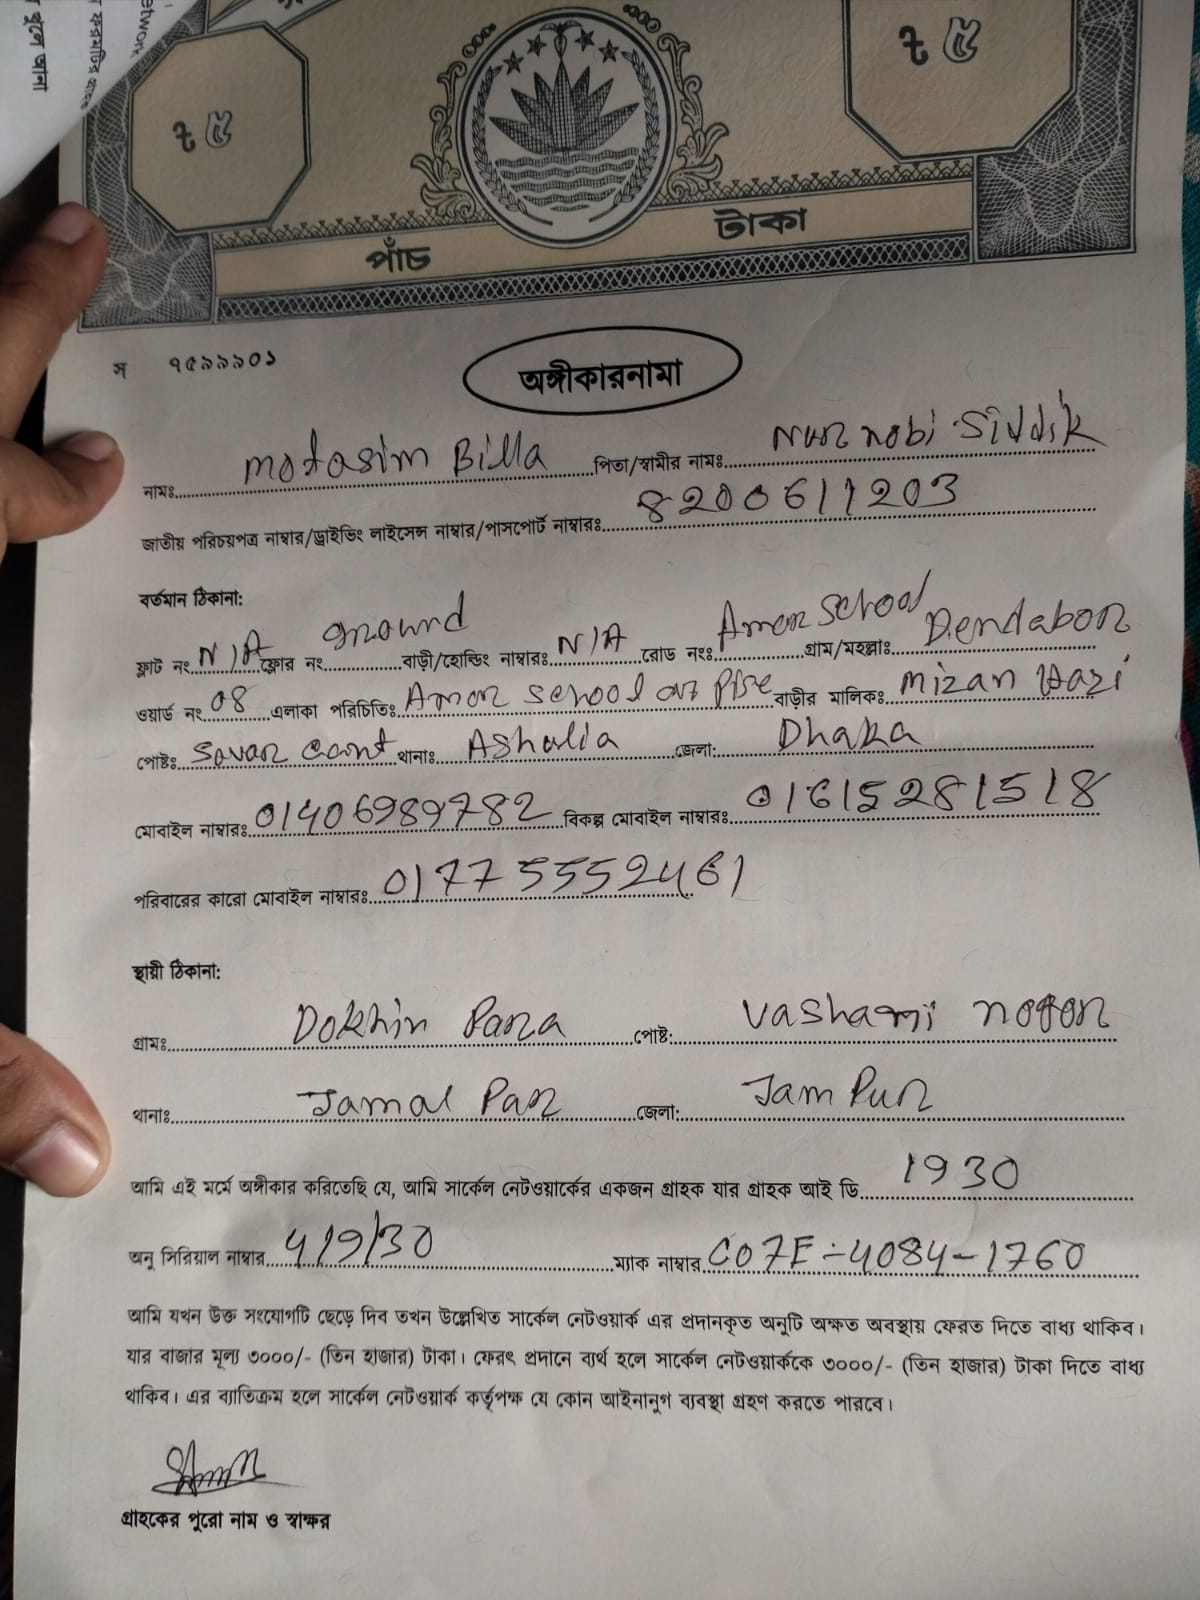 ৳ ৫
৳ ৫
পাঁচ টাকা
স ৭৫৯৯৯০১
অঙ্গীকারনামা
নামঃ motasim Billa পিতা/স্বামীর নামঃ Nur nobi Siddik
জাতীয় পরিচয়পত্র নাম্বার/ড্রাইভিং লাইসেন্স নাম্বার/পাসপোর্ট নাম্বারঃ 8200611203
বর্তমান ঠিকানা:
ফ্লাট নং N/A ফ্লোর নং ground বাড়ী/হোল্ডিং নাম্বারঃ N/A রোড নংঃ Amar School গ্রাম/মহল্লাঃ Dendabor
ওয়ার্ড নং 08 এলাকা পরিচিতিঃ Amar School বাড়ীর মালিকঃ mizan Hazi
পোষ্টঃ Savar cant থানাঃ Ashulia জেলা: Dhaka
মোবাইল নাম্বারঃ 01406989782 বিকল্প মোবাইল নাম্বারঃ 01615281518
পরিবারের কারো মোবাইল নাম্বারঃ 01775552461
স্থায়ী ঠিকানা:
গ্রামঃ Dokhin Para পোষ্ট: Vashani nogor
থানাঃ Jamal Pur জেলা: Jam Pur
আমি এই মর্মে অঙ্গীকার করিতেছি যে, আমি সার্কেল নেটওয়ার্কের একজন গ্রাহক যার গ্রাহক আই ডি 1930
অনু সিরিয়াল নাম্বার 4/9/30 ম্যাক নাম্বার C07E-4084-1760
আমি যখন উক্ত সংযোগটি ছেড়ে দিব তখন উল্লেখিত সার্কেল নেটওয়ার্ক এর প্রদানকৃত অনুটি অক্ষত অবস্থায় ফেরত দিতে বাধ্য থাকিব।
যার বাজার মূল্য ৩০০০/- (তিন হাজার) টাকা। ফেরৎ প্রদানে ব্যর্থ হলে সার্কেল নেটওয়ার্ককে ৩০০০/- (তিন হাজার) টাকা দিতে বাধ্য
থাকিব। এর ব্যাতিক্রম হলে সার্কেল নেটওয়ার্ক কর্তৃপক্ষ যে কোন আইনানুগ ব্যবস্থা গ্রহণ করতে পারবে।
গ্রাহকের পুরো নাম ও স্বাক্ষর